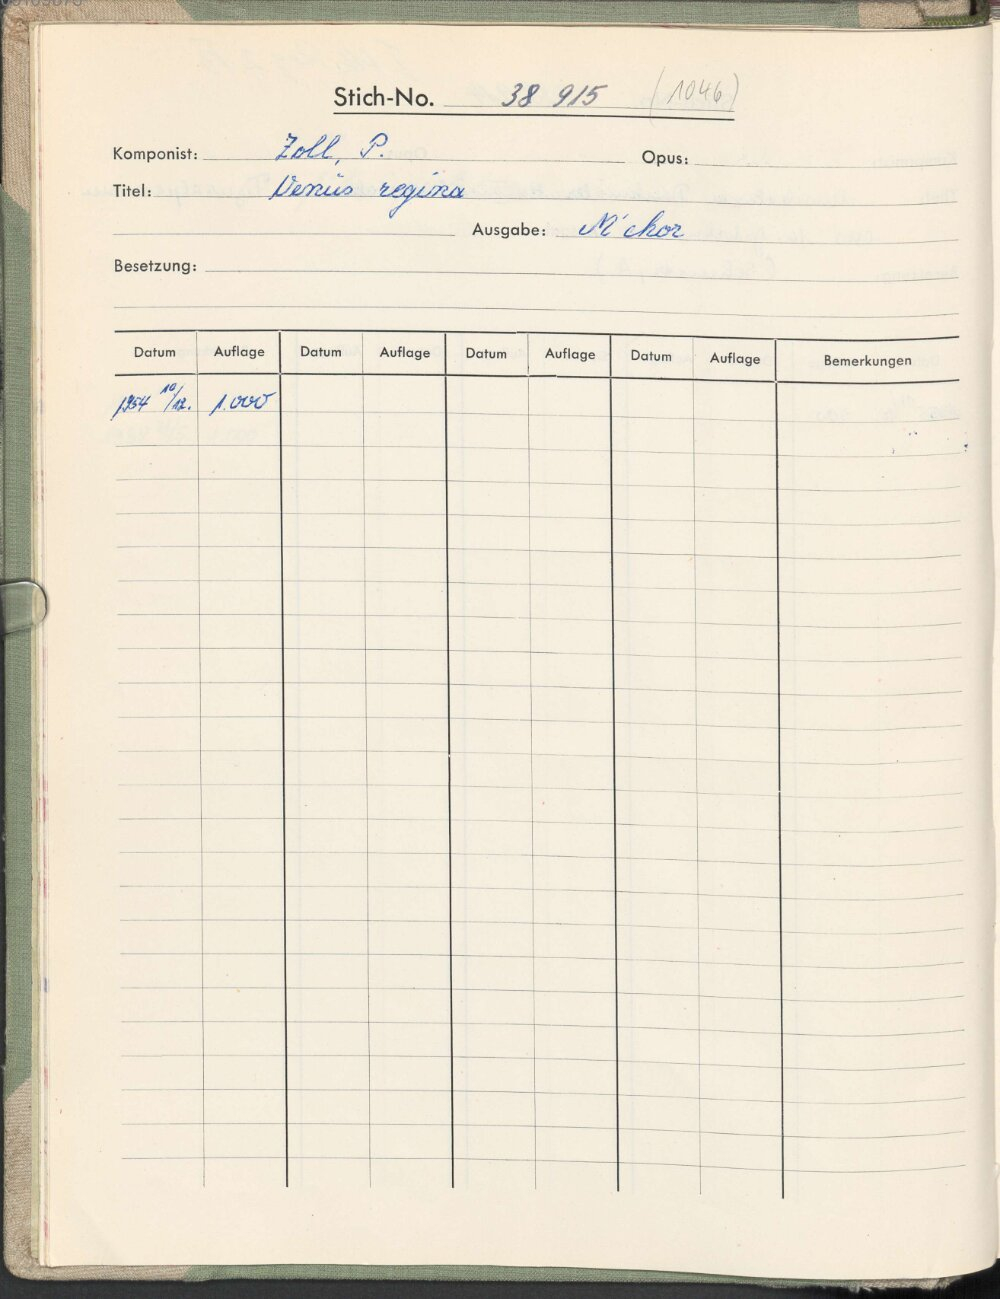 Stich-No. 38 915 (1046)
Komponist: Zoll, P. Opus:
Titel: Venus regina
Ausgabe: M'chor
Besetzung:
Datum Auflage Datum Auflage Datum Auflage Datum Auflage Bemerkungen
1954 10/12. 1.000